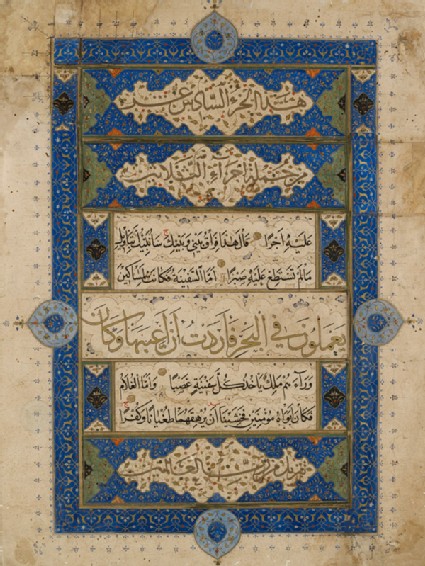 هذا الجزء السادس عشر
من جملة اجزاء الثلاثين
عَلَيْهِ أَجْرًا قَالَ هَذَا فِرَاقُ بَيْنِي وَبَيْنِكَ سَأُنَبِّئُكَ بِتَأْوِيلِ
مَا لَمْ تَسْتَطِعْ عَلَيْهِ صَبْرًا أَمَّا السَّفِينَةُ فَكَانَتْ لِمَسَاكِينَ
يَعْمَلُونَ فِي الْبَحْرِ فَأَرَدْتُ أَنْ أَعِيبَهَا وَكَانَ
وَرَاءَهُمْ مَلِكٌ يَأْخُذُ كُلَّ سَفِينَةٍ غَصْبًا وَأَمَّا الْغُلَامُ
فَكَانَ أَبَوَاهُ مُؤْمِنَيْنِ فَخَشِينَا أَنْ يُرْهِقَهُمَا طُغْيَانًا وَكُفْرًا
تنزيل من رب العالمين